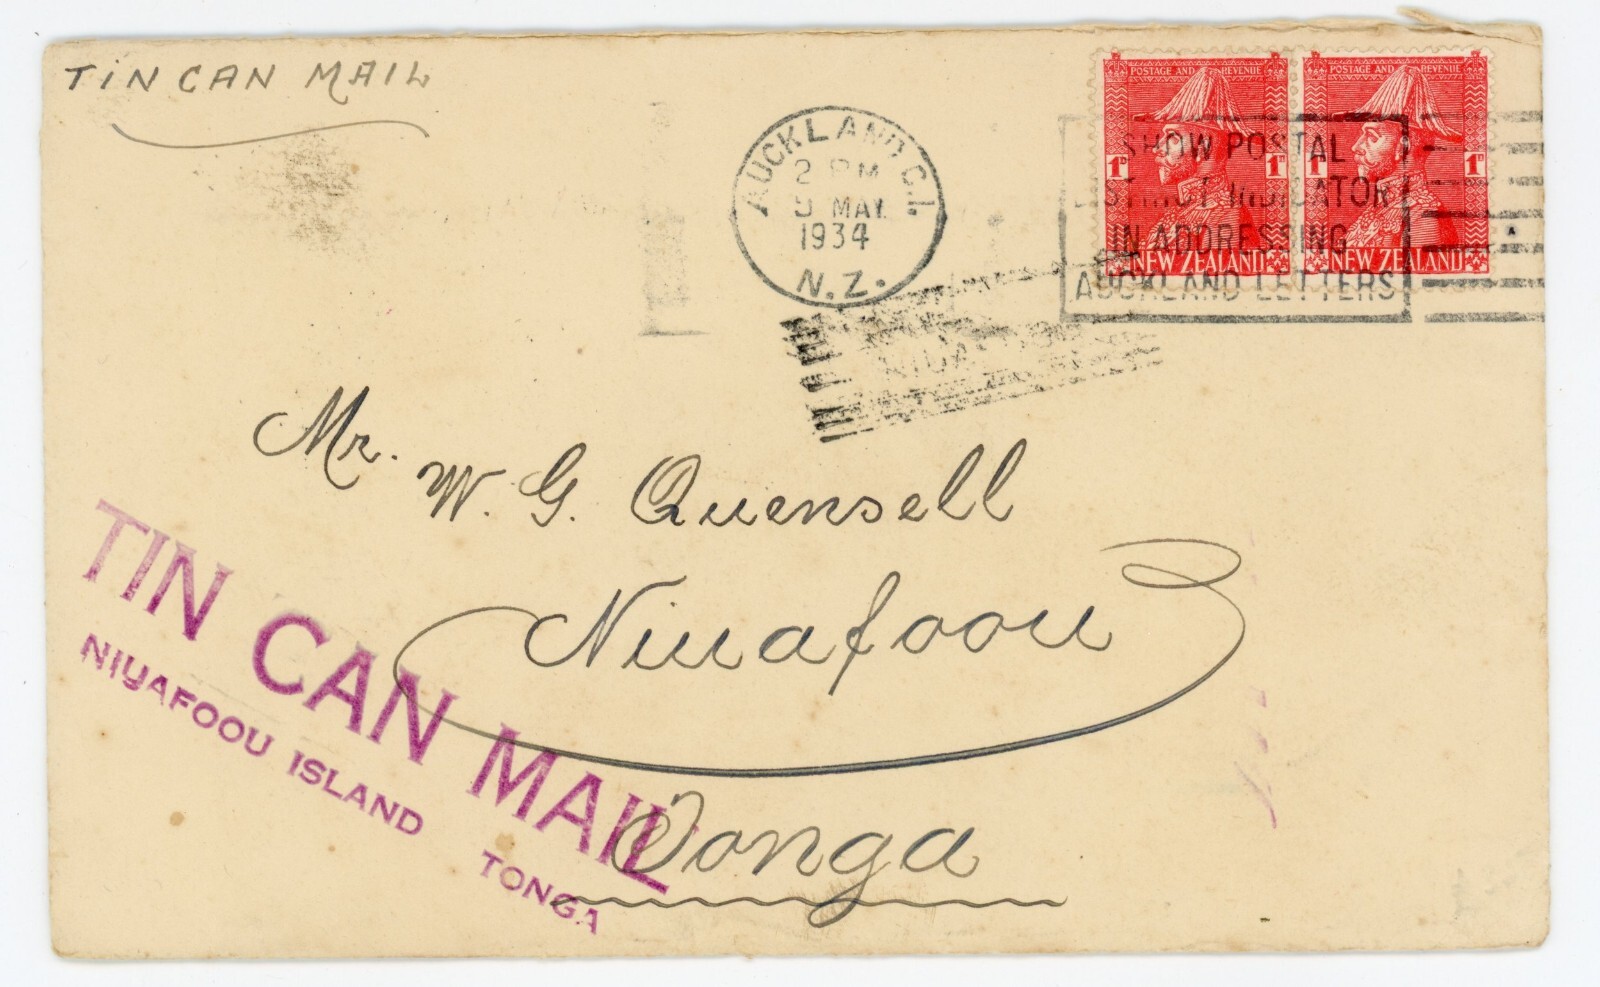 TIN CAN MAIL
AUCKLAND C.1.
2 PM
5 MAY
1934
N.Z.
POSTAGE AND REVENUE
1D 1D
NEW ZEALAND
POSTAGE AND REVENUE
1D 1D
NEW ZEALAND
SHOW POSTAL
DISTRICT INDICATOR
IN ADDRESSING
AUCKLAND LETTERS
Mr. W. G. Quensell
Niuafoou
Tonga
TIN CAN MAIL
NIUAFOOU ISLAND TONGA